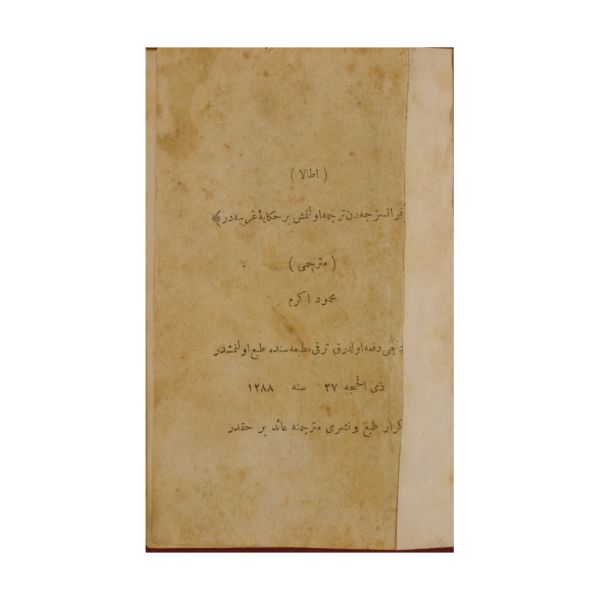 ( اطالا )
فرانسزجه‌دن ترجمه اولنمش بر حكایهٔ غریبه‌در ﴾
( مترجمی )
محمود اكرم
دفعه اوله‌رق ترقی مطبعه‌سنده طبع اولنمشدر
ذی الحجه ٢٧ سنه ١٢٨٨
تكرار طبع و نشری مترجمنه عائد بر حقدر